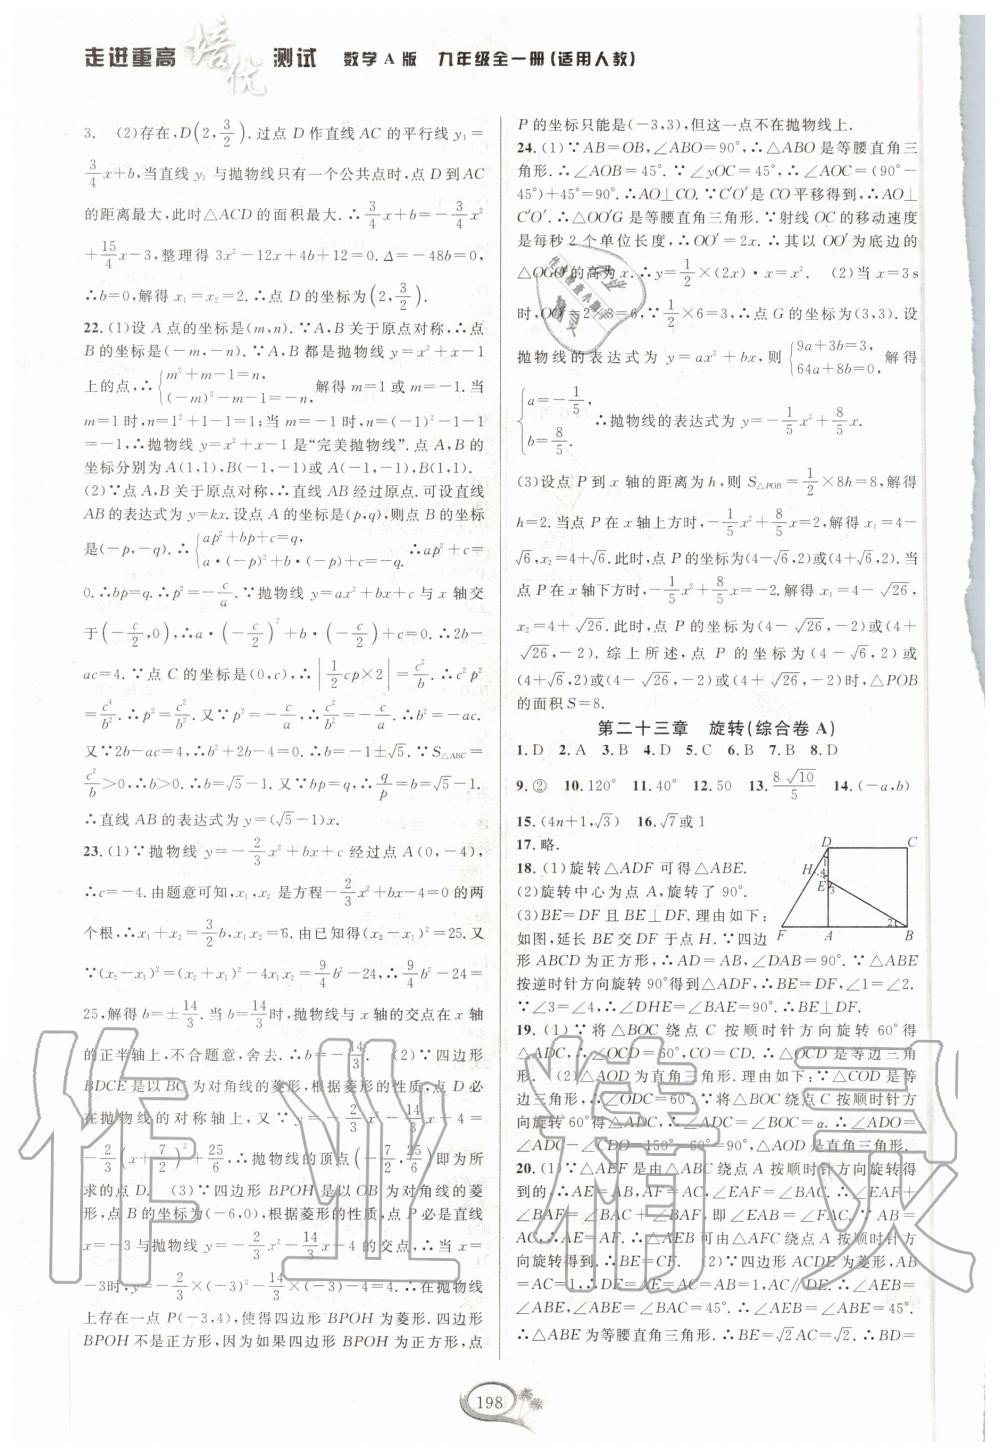 走进重高 培优 测试 数学A版 九年级全一册(适用人教)
3. (2)存在,D(2,3/2).过点D作直线AC的平行线y₁=
3/4x+b,当直线y₁与抛物线只有一个公共点时,点D到AC
的距离最大,此时△ACD的面积最大.∴3/4x+b=-3/4x²
+15/4x-3,整理得3x²-12x+4b+12=0.Δ=-48b,
∴b=0,解得x₁=x₂=2.∴点D的坐标为(2,3/2).
22.(1)设A点的坐标是(m,n).∵A,B关于原点对称,∴点
B的坐标是(-m,-n).∵A,B都是抛物线y=x²+x-1
上的点,∴{m²+m-1=n, (-m)²-m-1=-n, 解得m=1或m=-1.当
m=1时,n=1²+1-1=1;当m=-1时,n=(-1)²-1-1
=-1,∴抛物线y=x²+x-1是“完美抛物线”.点A,B的
坐标分别为A(1,1),B(-1,-1)或A(-1,-1),B(1,1).
(2)∵点A,B关于原点对称,∴直线AB经过原点.可设直线
AB的表达式为y=kx.设点A的坐标是(p,q),则点B的坐标
是(-p,-q).∴{ap²+bp+c=q, a·(-p)²+b·(-p)+c=-q, ∴ap²+c=
0.∴bp=q.∴p²=-c/a.∵抛物线y=ax²+bx+c与x轴交
于(-c/2,0),∴a·(-c/2)²+b·(-c/2)+c=0.∴2b-
ac=4.∵点C的坐标是(0,c),∴|1/2cp×2|=c²/b.∴c²p²
=c⁴/b².∴p²=c²/b².又∵p²=-c/a,∴c²/b²=-c/a.∴b²=-ac.
又∵2b-ac=4,∴b²+2b-4=0.∴b=-1±√5.∵S△ABC=
c²/b>0,∴b>0.∴b=√5-1.又∵bp=q,∴q/p=b=√5-1.
∴直线AB的表达式为y=(√5-1)x.
23.(1)∵抛物线y=-2/3x²+bx+c经过点A(0,-4),
∴c=-4.由题意可知,x₁,x₂是方程-2/3x²+bx-4=0的两
个根,∴x₁+x₂=3/2b,x₁x₂=6.由已知得(x₂-x₁)²=25.又
∵(x₂-x₁)²=(x₂+x₁)²-4x₁x₂=9/4b²-24,∴9/4b²-24=
25,解得b=±14/3.当b=14/3时,抛物线与x轴的交点在x轴
的正半轴上,不合题意,舍去.∴b=-14/3. (2)∵四边形
BDCE是以BC为对角线的菱形,根据菱形的性质,点D必
在抛物线的对称轴上,又∵y=-2/3x²-14/3x-4=
-2/3(x+7/2)²+25/6,∴抛物线的顶点(-7/2,25/6)即为所
求的点D. (3)∵四边形BPOH是以OB为对角线的菱
形,点B的坐标为(-6,0),根据菱形的性质,点P必是直线
x=-3与抛物线y=-2/3x²-14/3x-4的交点,∴当x=
-3时,y=-2/3×(-3)²-14/3×(-3)-4=4,∴在抛物线
上存在一点P(-3,4),使得四边形BPOH为菱形.四边形
BPOH不是正方形,因为如果四边形BPOH为正方形,点
P的坐标只能是(-3,3),但这一点不在抛物线上.
24.(1)∵AB=OB,∠ABO=90°,∴△ABO是等腰直角三
角形.∴∠AOB=45°.∵∠yOC=45°,∴∠AOC=(90°-
45°)+45°=90°.∴AO⊥CO.∵C′O′是CO平移得到,∴AO⊥
C′O′.∴△OO′G是等腰直角三角形.∵射线OC的移动速度
是每秒2个单位长度,∴OO′=2x.∴其以OO′为底边的
△OGO′的高为x.∴y=1/2×(2x)·x=x². (2)当x=3s
时,OO′=2×3=6,∵1/2×6=3,∴点G的坐标为(3,3).设
抛物线的表达式为y=ax²+bx,则{9a+3b=3, 64a+8b=0. 解得
{a=-1/5, b=8/5. ∴抛物线的表达式为y=-1/5x²+8/5x.
(3)设点P到x轴的距离为h,则S△POB=1/2×8h=8,解得
h=2.当点P在x轴上方时,-1/5x²+8/5x=2,解得x₁=4-
√6,x₂=4+√6.此时,点P的坐标为(4-√6,2)或(4+√6,2).当
点P在x轴下方时,-1/5x²+8/5x=-2.解得x₁=4-√26,
x₂=4+√26.此时,点P的坐标为(4-√26,-2)或(4+
√26,-2).综上所述,点P的坐标为(4-√6,2)或
(4+√6,2)或(4-√26,-2)或(4+√26,-2)时,△POB
的面积S=8.
第二十三章 旋转(综合卷A)
1.D 2.A 3.B 4.D 5.C 6.B 7.B 8.D
9.② 10.120° 11.40° 12.50 13.8√10/5 14.(-a,b)
15.(4n+1,√3) 16.√7或1
17.略.
18.(1)旋转△ADF可得△ABE.
(2)旋转中心为点A,旋转了90°.
(3)BE=DF且BE⊥DF.理由如下:
如图,延长BE交DF于点H.∵四边
形ABCD为正方形,∴AD=AB,∠DAB=90°.∵△ABE
按逆时针方向旋转90°得到△ADF,∴BE=DF,∠1=∠2.
∵∠3=∠4,∴∠DHE=∠BAE=90°.∴BE⊥DF.
D
H 1 4 E 3
F A 2 B C
19.(1)∵将△BOC绕点C按顺时针方向旋转60°得
△ADC,∴∠OCD=60°,CO=CD.∴△OCD是等边三角
形. (2)△AOD为直角三角形.理由如下:∵△OCD为等边
三角形,∴∠ODC=60°.∵将△BOC绕点C按顺时针方
向旋转60°得△ADC,∴∠ADC=∠BOC=α.∴∠ADO=
∠ADC-∠CDO=150°-60°=90°,∴△AOD是直角三角形.
20.(1)∵△AEF是由△ABC绕点A按顺时针方向旋转得
到的,∴AE=AB,AF=AC,∠EAF=∠BAC,∴∠EAF+
∠BAF=∠BAC+∠BAF,即∠EAB=∠FAC.∵AB=
AC,∴AE=AF.∴△AEB可由△AFC绕点A按顺时针方
向旋转得到.∴BE=CF. (2)∵四边形ACDE为菱形,AB
=AC=1,∴DE=AE=AC=AB=1,AC∥DE.∴∠AEB=
∠ABE,∠ABE=∠BAC=45°.∴∠AEB=∠ABE=45°.
∴△ABE为等腰直角三角形.∴BE=√2AC=√2.∴BD=
198
作业精灵